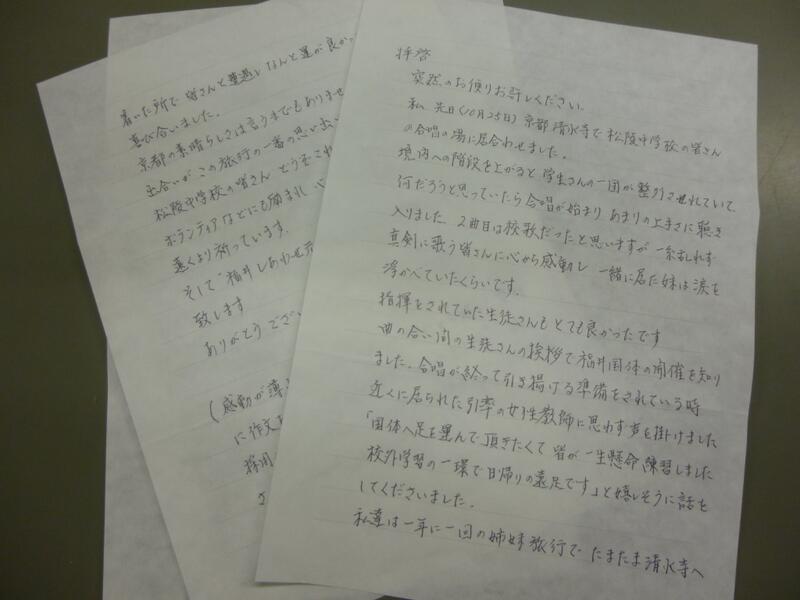 拝啓
突然のお便りお許しください。
私 先日(10月25日)京都清水寺で松陵中学校の皆さん
の合唱の場に居合わせました。
境内への階段を上がると学生さんの一団が整列させれていて
何だろうと思っていたら合唱が始まり あまりの上手さに聴き
入りました 2曲目は校歌だったと思いますが 一糸乱れず
真剣に歌う皆さんに心から感動し 一緒に居た妹は涙を
浮かべていたくらいです。
指揮をされていた生徒さんも とても良かったです
曲の合い間の生徒さんの挨拶で福井国体の開催を知り
ました。合唱が終って引き揚げる準備をされている時
近くに居られた引率の女性教師に思わず声を掛けました
「国体へ足を運んで頂きたくて 皆が一生懸命練習しました
校外学習の一環で日帰りの遠足です」と嬉しそうに話を
してくださいました。
私達は一年に一回の姉妹旅行で たまたま清水寺へ
着いた所で 皆さんと遭遇し なんと運が良か
喜び合いました。
京都の素晴らしさは言うまでもありませ
出合いが この旅行の一番の思い出
松陵中学校の皆さん どうぞこれ
ボランティアなどにも励まれ
遠くより祈っています。
そして"福井しあわせ元
致します
ありがとう ござい
(感動が薄
に作文
採用
さ